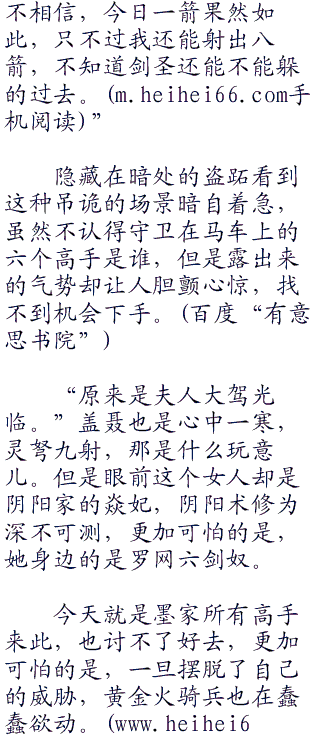 不相信，今日一箭果然如
此，只不过我还能射出八
箭，不知道剑圣还能不能躲
的过去。(m.heihei66.com手
机阅读)”
隐藏在暗处的盗跖看到
这种吊诡的场景暗自着急，
虽然不认得守卫在马车上的
六个高手是谁，但是露出来
的气势却让人胆颤心惊，找
不到机会下手。(百度“有意
思书院”)
“原来是夫人大驾光
临。”盖聂也是心中一寒，
灵弩九射，那是什么玩意
儿。但是眼前这个女人却是
阴阳家的焱妃，阴阳术修为
深不可测，更加可怕的是，
她身边的是罗网六剑奴。
今天就是墨家所有高手
来此，也讨不了好去，更加
可怕的是，一旦摆脱了自己
的威胁，黄金火骑兵也在蠢
蠢欲动。(www.heihei6